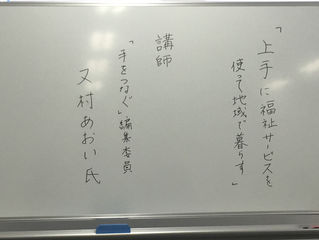 「上手に福祉サービスを
使って地域で暮らす」
講師
「手をつなぐ」編集委員
又村あおい氏